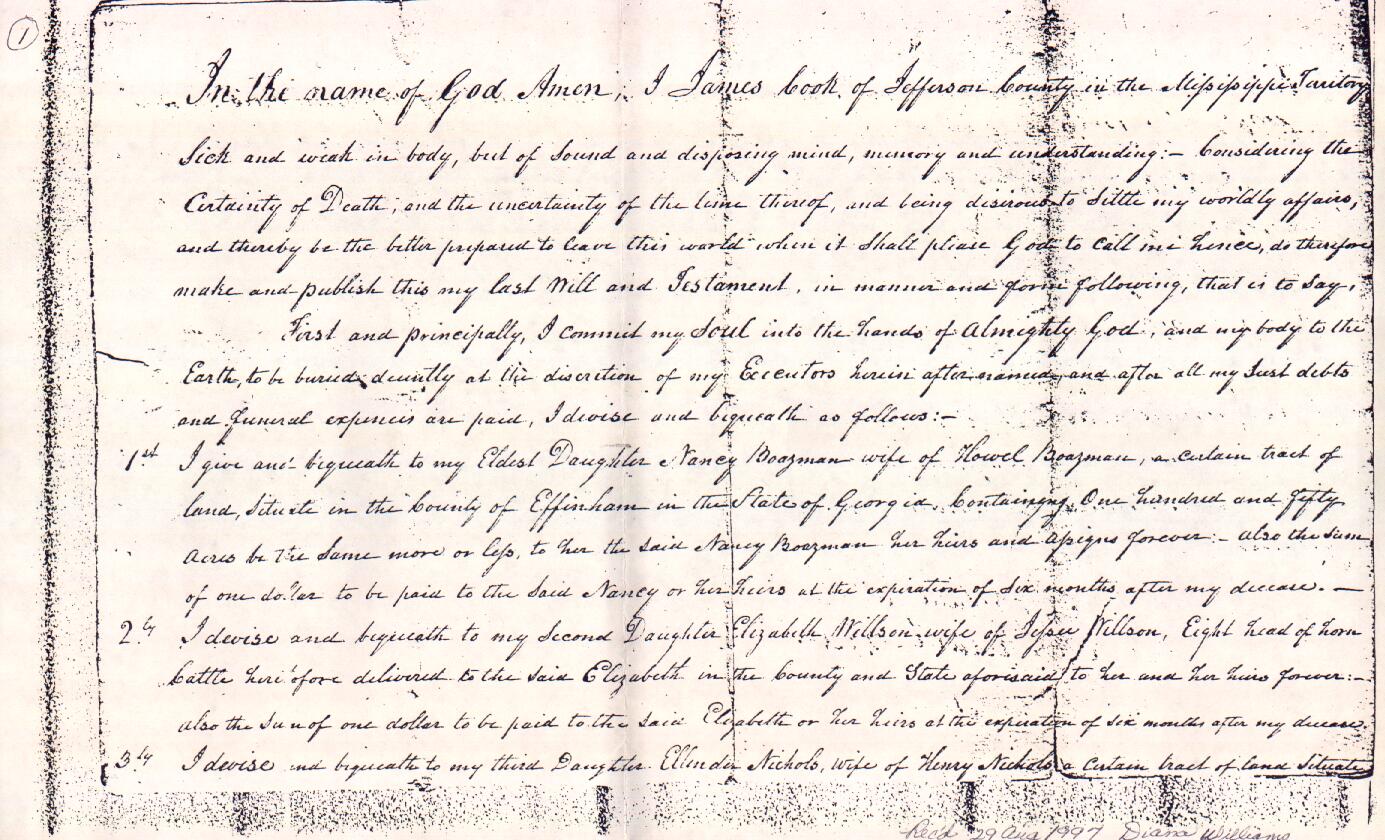 1
In the name of God Amen, I James Cook of Jefferson County in the Missisippi Territory
Sick and weak in body, but of Sound and disposing mind, memory and understanding:- Considering the
Certainty of Death, and the uncertainty of the time thereof, and being desirous to Settle my worldly affairs,
and thereby be the better prepared to leave this world when it Shall please God to call me hence, do therefore
make and publish this my last Will and Testament, in manner and form following, that is to Say,
First and principally, I commit my Soul into the hands of Almighty God, and my body to the
Earth, to be buried decently at the discretion of my Executors herein after named, and after all my Just debts
and funeral expences are paid, I devise and bequeath as follows:-
1st I give and bequeath to my Eldest Daughter Nancy Boazman wife of Howel Boazman, a certain tract of
land, Situate in the County of Effinham in the State of Georgia, Containing One hundred and fifty
Acres be the Same more or less, to her the said Nancy Boazman her heirs and assigns forever:- also the Sum
of one dollar to be paid to the Said Nancy or her heirs at the expiration of Six months after my decease. —
2ly I devise and bequeath to my Second Daughter Elizabeth Willson wife of Jesse Willson, Eight head of horn
Cattle heretofore delivered to the said Elizabeth in the County and State aforesaid to her and her heirs forever:-
also the Sum of one dollar to be paid to the said Elizabeth or her heirs at the expiration of Six months after my decease.
3ly I devise and bequeath to my third Daughter Ellender Nichols, wife of Henry Nichols a Certain tract of land Situate
Recd 29 Aug 1997 Diana Williams